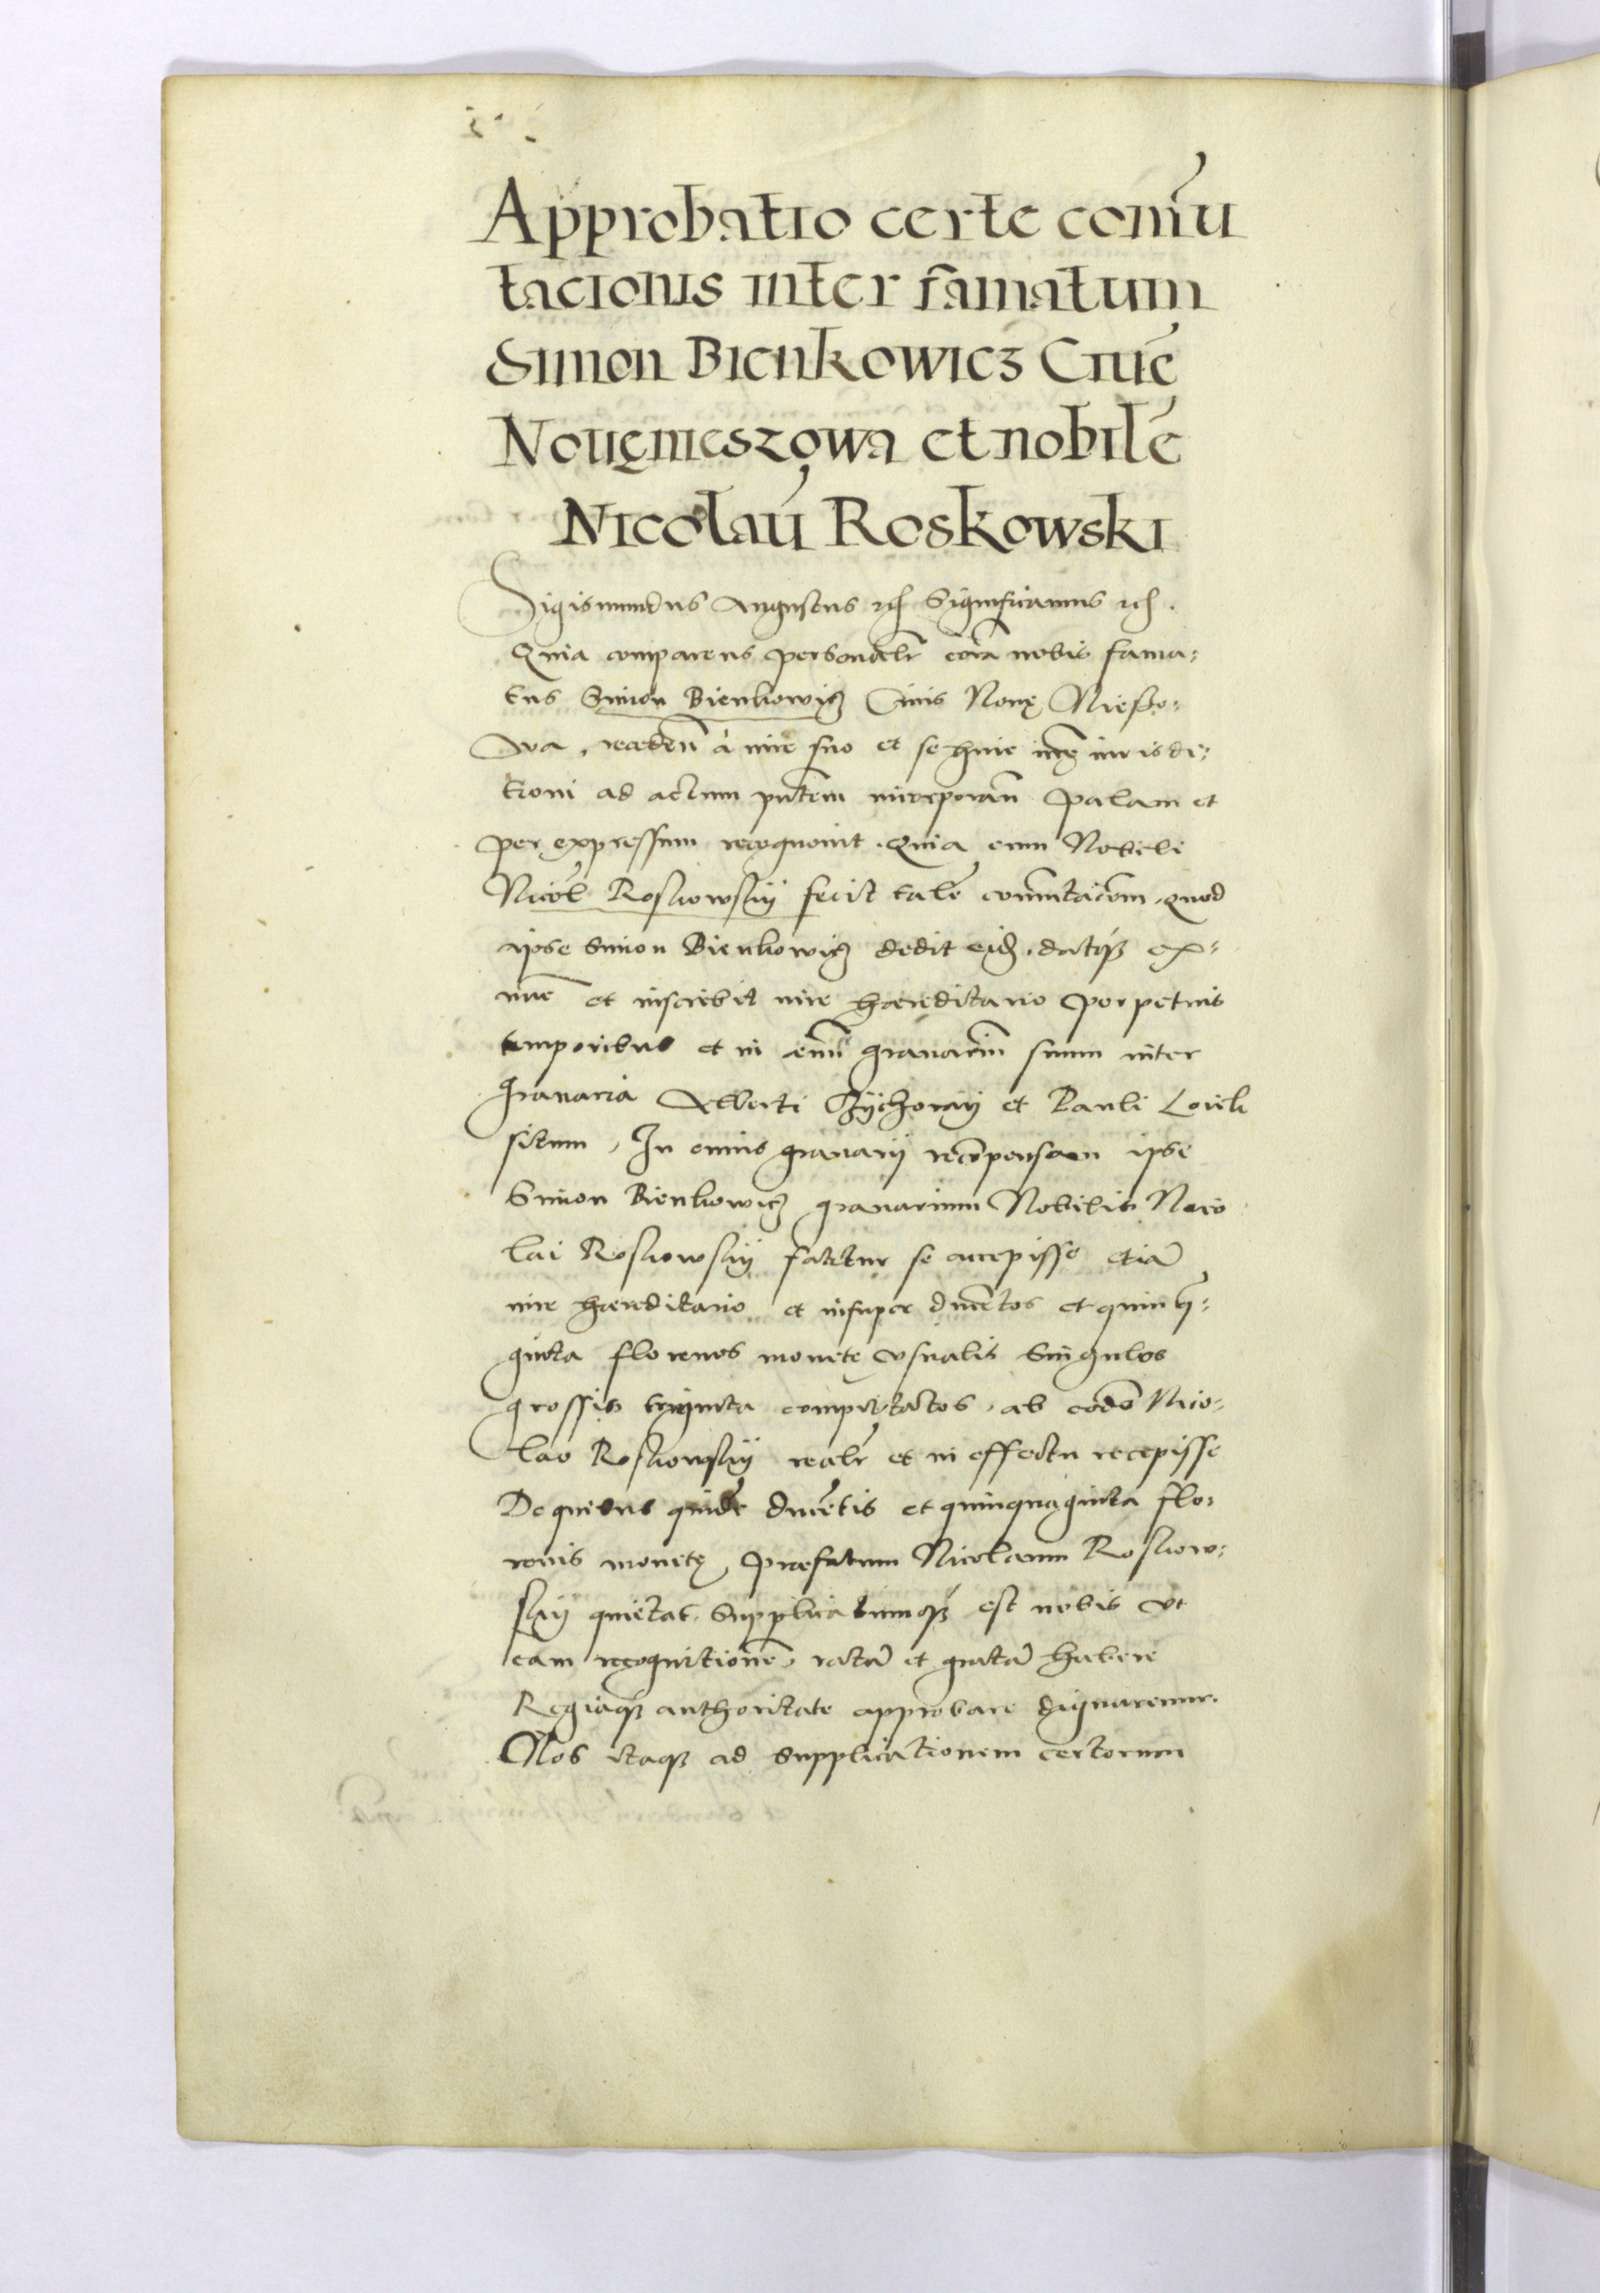 Approbatio certe com̃u
tacionis inter famatum
Simon Bienkowicz Ciuẽ
Nouęnieszowa et nobilẽ
Nicolaũ Roskowski
Sigismundus Augustus etc̃ Significamus etc̃.
Quia comparens personalr̃ corã nobis fama-
tus Simon Bienkowicz Ciuis Nouę Niesso-
wa, recedeñ à iure suo et se huic iurisdi-
tioni ad actum pñtem incorporañ palam et
per expressum recognouit. Quia cum Nobili
Nicol̃ Roskowskij fecit talẽ com̃utac̃om, quod
ipse Simon Bienkowicz dedit eid, datqȝ ex
nũc et inscribit iure haereditario perpetuis
temporibus et in aeuũ granariũ suum inter
granaria Alberti et Pauli
situm, In cuius granarij recõpensam ipse
Simon Bienkowicz granarium Nobilis Nico
lai Roskowskij fatetur se accepisse etiã
iure haereditario et insuper ducẽtos et quinq̃-
ginta florenos monetę vsualis singulos
grossis triginta computatos, ab eodẽ Nico-
lao Roskowskij realr̃ et in effectu recepisse
De quibus quidẽ ducẽtis et quinquaginta flo-
renis monetę, praefatum Nicolaum Roskow-
skij quietat. Supplicatumqȝ est nobis vt
eam recognitionẽ, ratã et gratã habere
Regiaqȝ authoritate approbare dignaremur.
Nos itaqȝ ad supplicationem certorum